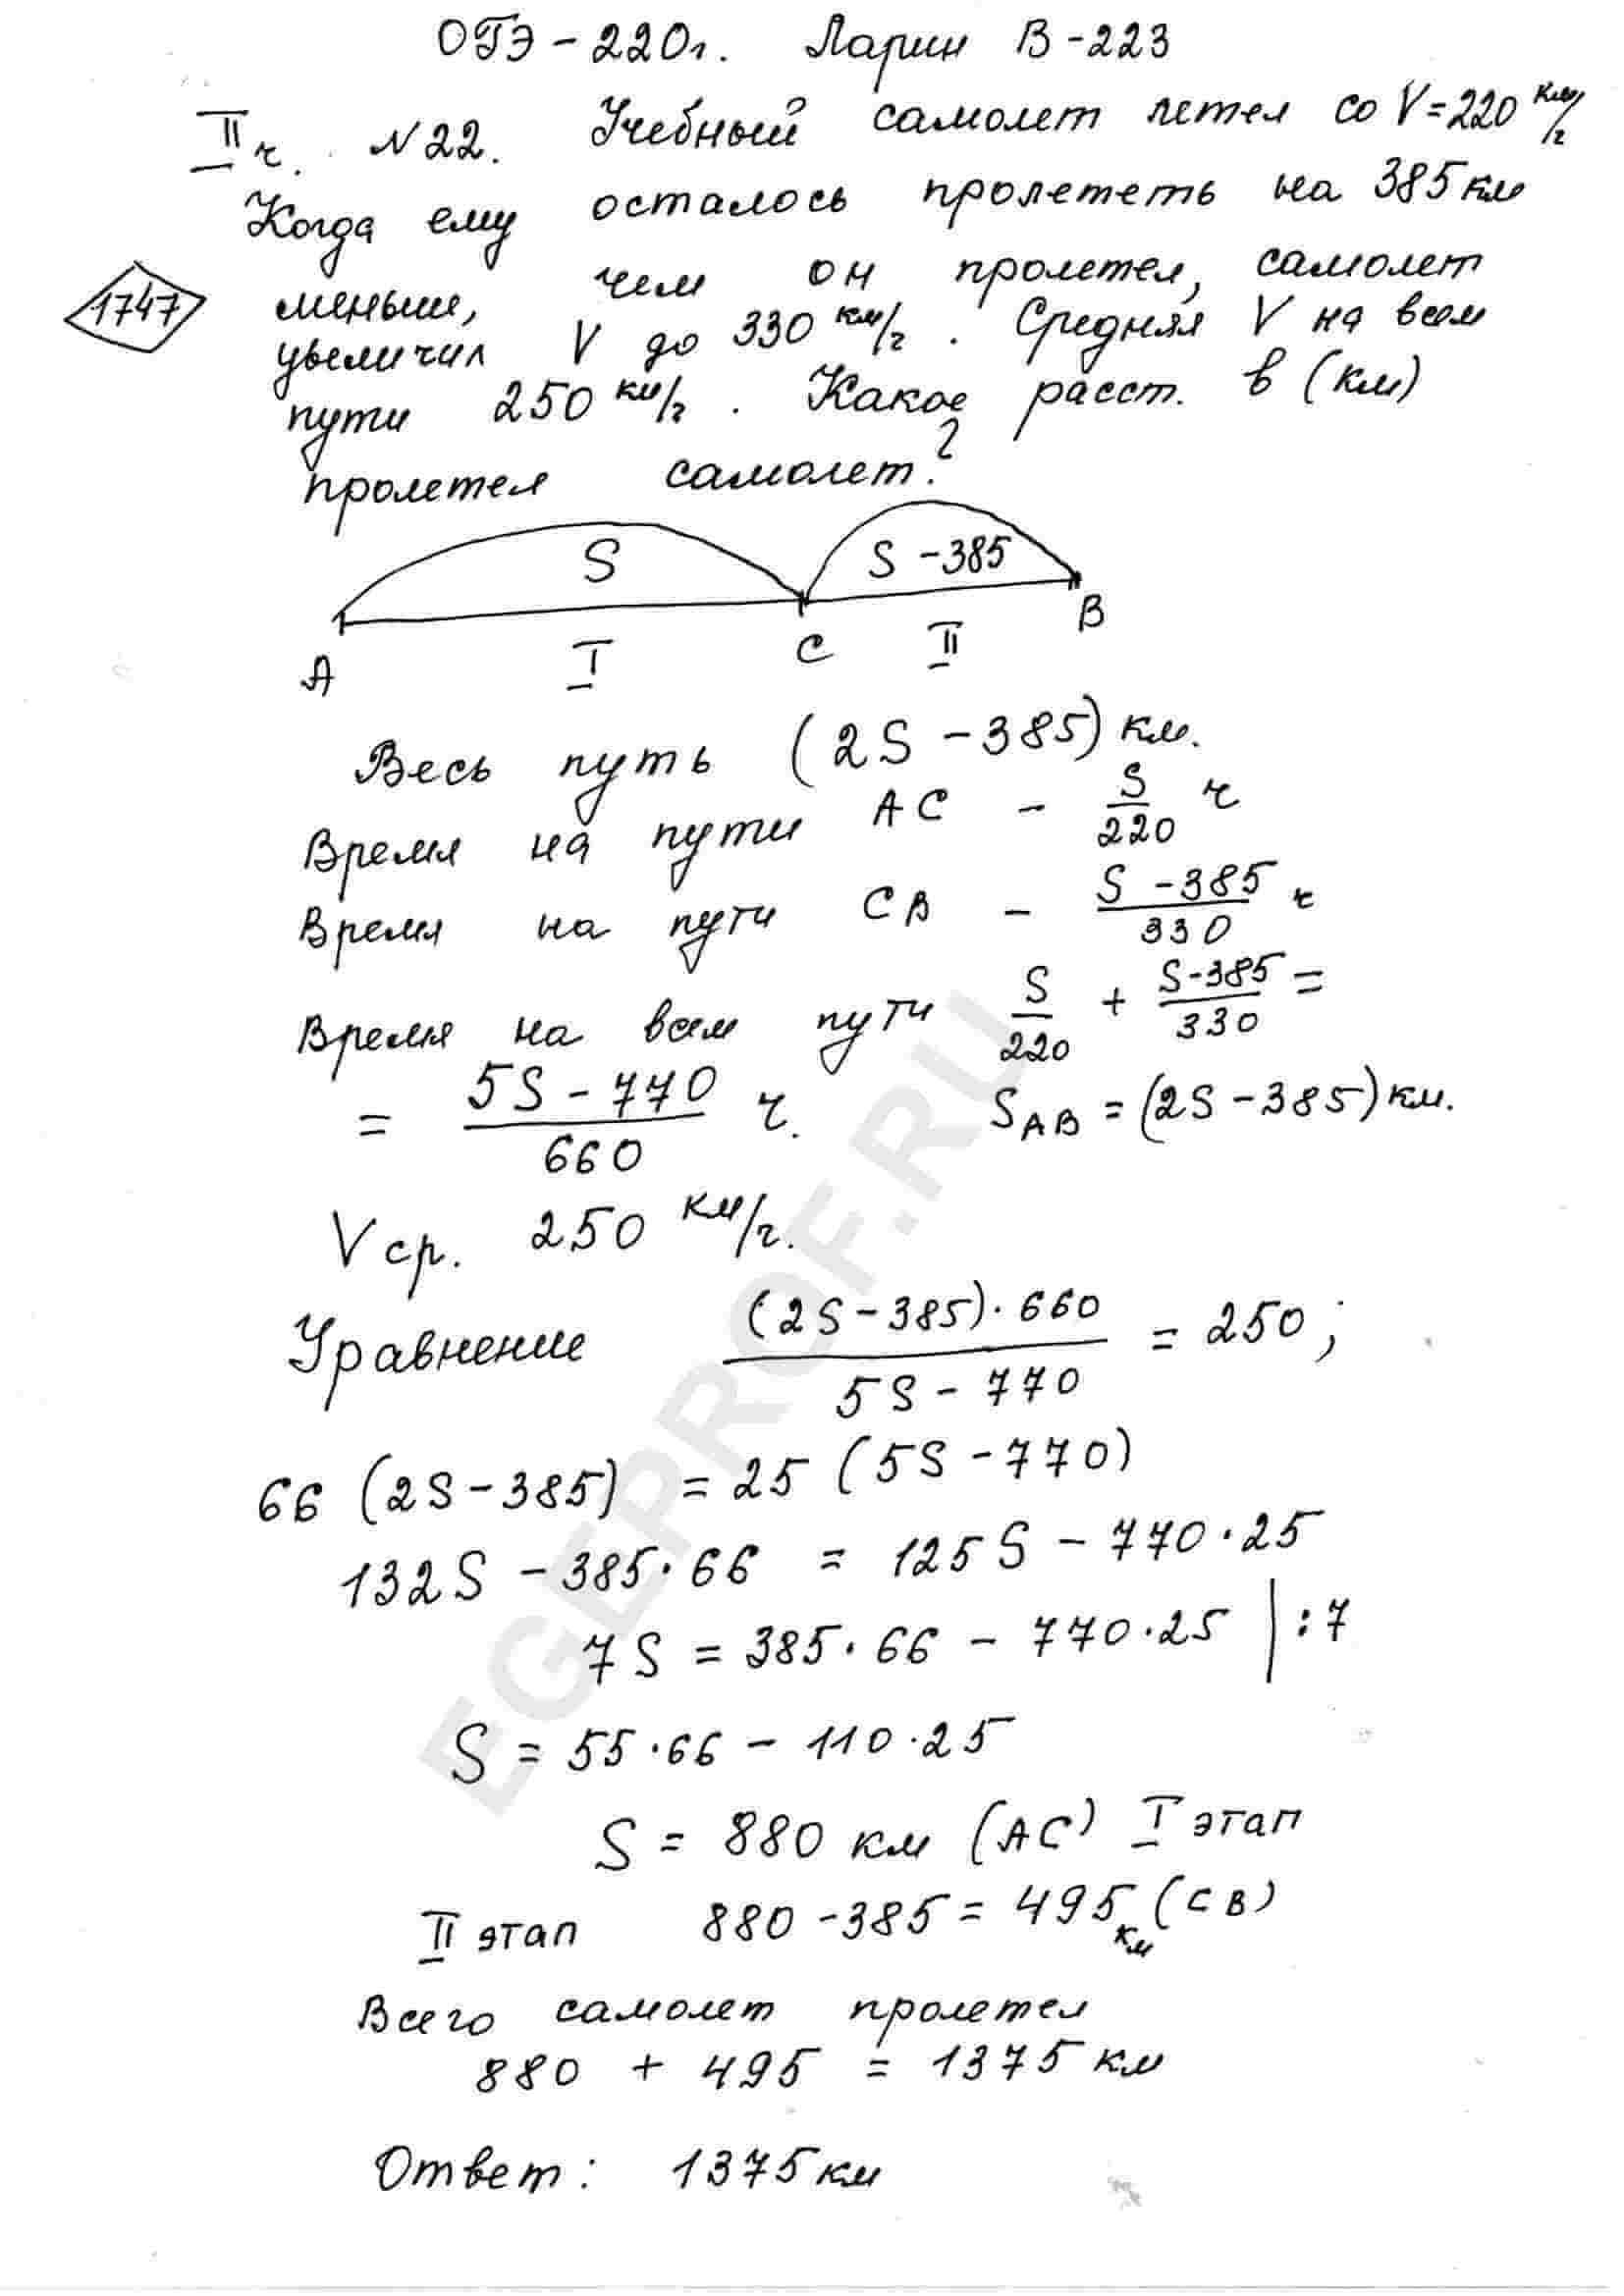 ОГЭ - 220г. Ларин В-223
II ч. N22. Учебный самолет летел со V=220 км/ч
Когда ему осталось пролететь на 385 км
1747
меньше, чем он пролетел, самолет
увеличил V до 330 км/ч. Средняя V на всем
пути 250 км/ч. Какое расст. в (км)
пролетел самолет?
S
S - 385
A I C II B
Весь путь (2S - 385) км.
Время на пути AC - S/220 ч
Время на пути CB - (S - 385)/330 ч
Время на всем пути S/220 + (S-385)/330 =
= (5S - 770)/660 ч. S AB = (2S - 385) км.
V ср. 250 км/ч.
Уравнение (2S - 385)·660 / (5S - 770) = 250;
66 (2S - 385) = 25 (5S - 770)
132S - 385·66 = 125S - 770·25
7S = 385·66 - 770·25 | :7
S = 55·66 - 110·25
S = 880 км (AC) I этап
II этап 880 - 385 = 495 км (CB)
Всего самолет пролетел
880 + 495 = 1375 км
Ответ: 1375 км
EGEPROF.RU